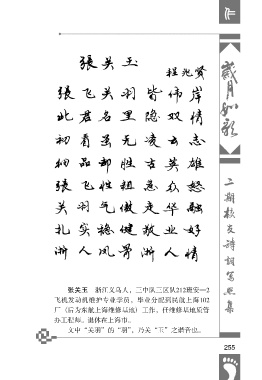 作
张关玉
程兆贤
张飞关羽皆伟岸
此君名里隐双情
初看虽无凌云志
细品却胜古英雄
张飞性粗急众怒
关羽气傲走华融
扎实稳健敬业好
浙人风骨浙人情
张关玉 浙江义乌人，三中队三区队212班安—2
飞机发动机维护专业学员。毕业分配到民航上海102
厂（后为东航上海维修基地）工作，任维修基地质管
办工程师。退休在上海市。
文中“关羽”的“羽”，乃关“玉”之谐音也。
岁月如歌
二期校友诗词写照集
255